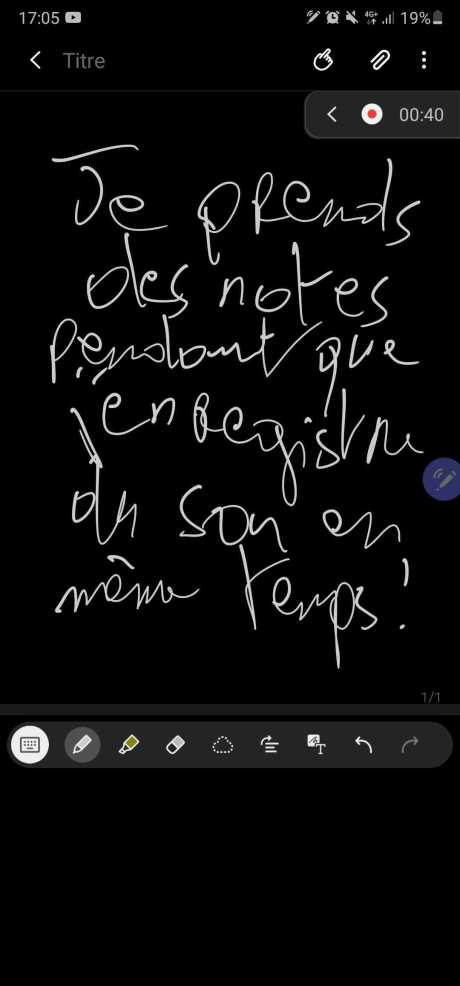 17:05 4G+ 19%
Titre
00:40
Je prends
des notes
pendant que
j'enregistre
du son en
même temps !
1/1